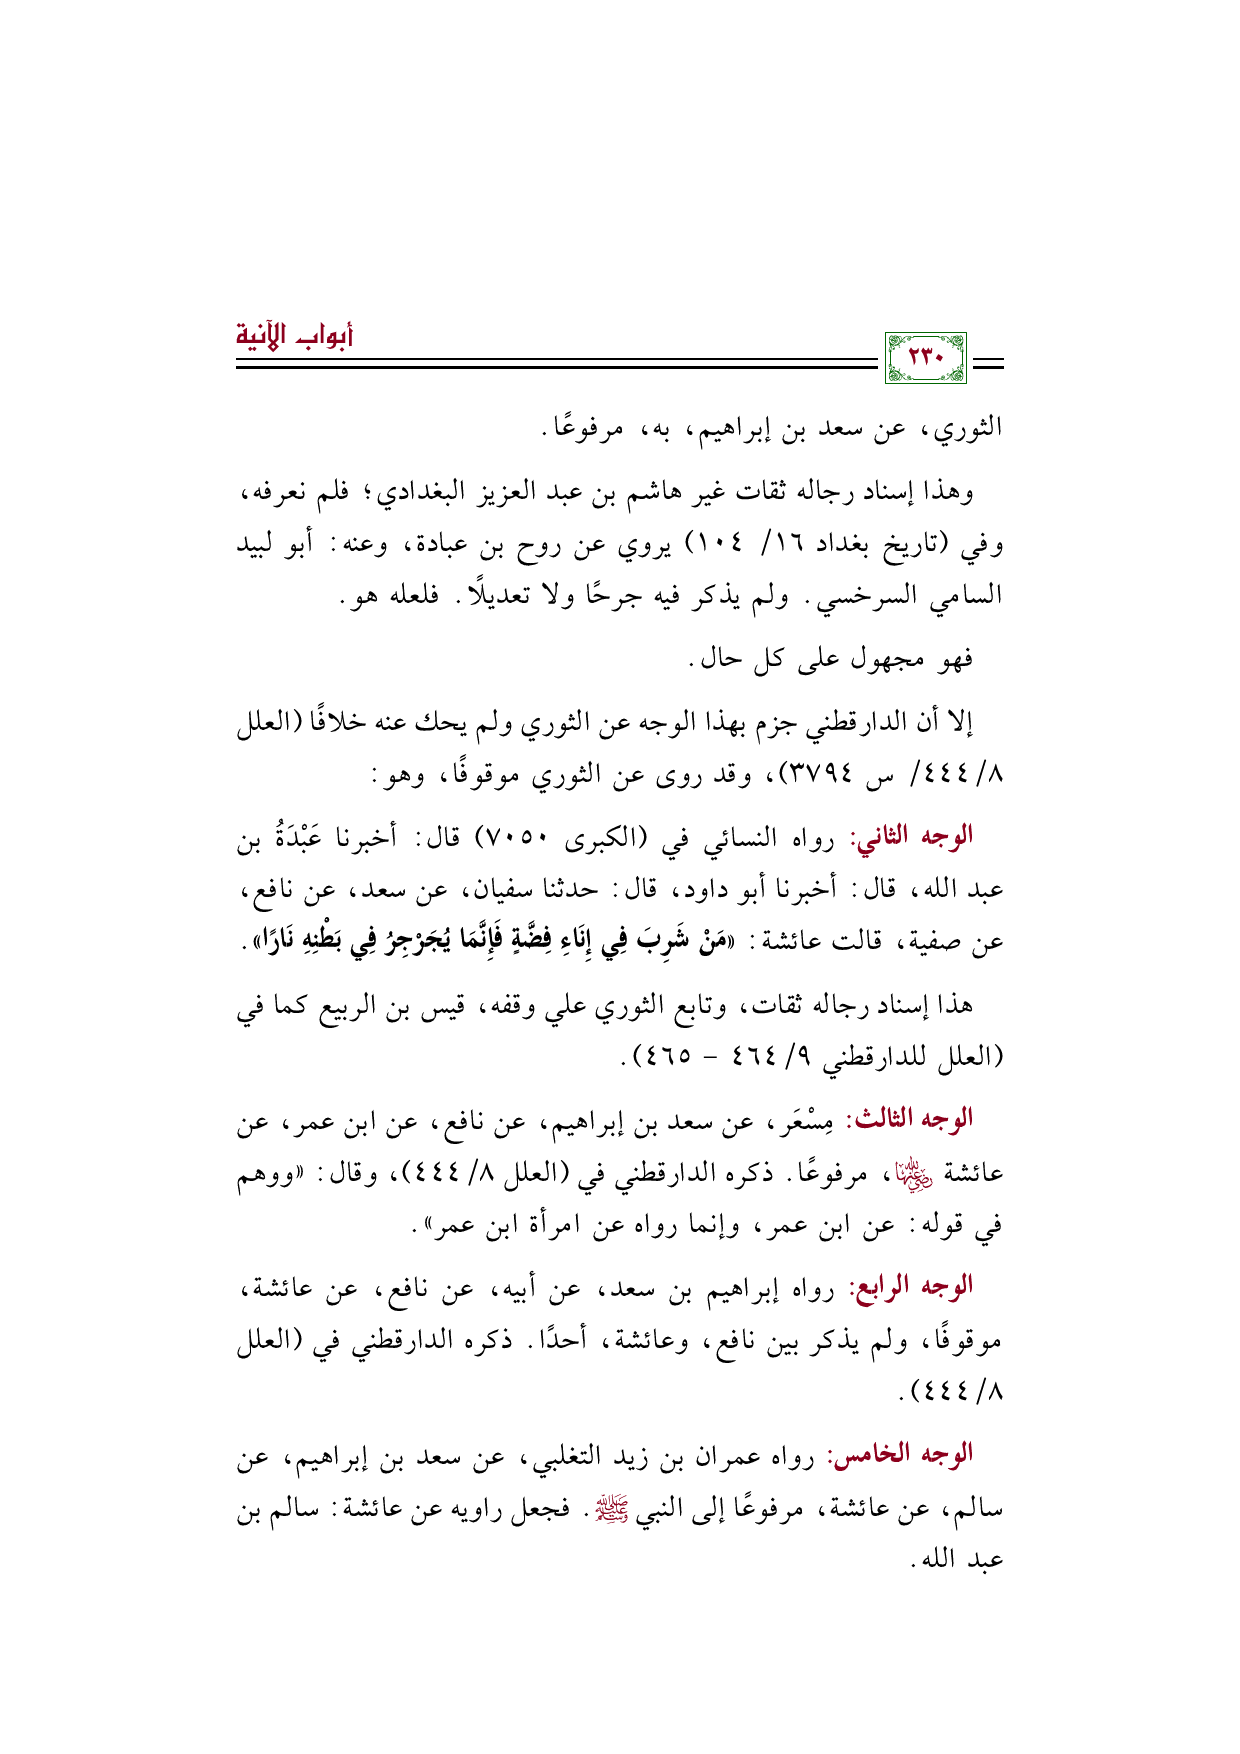 أبواب الآنية
٢٣٠
الثوري، عن سعد بن إبراهيم، به، مرفوعًا.
وهذا إسناد رجاله ثقات غير هاشم بن عبد العزيز البغدادي؛ فلم نعرفه،
وفي (تاريخ بغداد ١٦/ ١٠٤) يروي عن روح بن عبادة، وعنه: أبو لبيد
السامي السرخسي. ولم يذكر فيه جرحًا ولا تعديلًا. فلعله هو.
فهو مجهول على كل حال.
إلا أن الدارقطني جزم بهذا الوجه عن الثوري ولم يحك عنه خلافًا (العلل
٨/ ٤٤٤/ س ٣٧٩٤)، وقد روى عن الثوري موقوفًا، وهو:
الوجه الثاني: رواه النسائي في (الكبرى ٧٠٥٠) قال: أخبرنا عَبْدَةُ بن
عبد الله، قال: أخبرنا أبو داود، قال: حدثنا سفيان، عن سعد، عن نافع،
عن صفية، قالت عائشة: «مَنْ شَرِبَ فِي إِنَاءِ فِضَّةٍ فَإِنَّمَا يُجَرْجِرُ فِي بَطْنِهِ نَارًا».
هذا إسناد رجاله ثقات، وتابع الثوري علي وقفه، قيس بن الربيع كما في
(العلل للدارقطني ٩/ ٤٦٤ - ٤٦٥).
الوجه الثالث: مِسْعَر، عن سعد بن إبراهيم، عن نافع، عن ابن عمر، عن
عائشة رضي الله عنها، مرفوعًا. ذكره الدارقطني في (العلل ٨/ ٤٤٤)، وقال: «ووهم
في قوله: عن ابن عمر، وإنما رواه عن امرأة ابن عمر».
الوجه الرابع: رواه إبراهيم بن سعد، عن أبيه، عن نافع، عن عائشة،
موقوفًا، ولم يذكر بين نافع، وعائشة، أحدًا. ذكره الدارقطني في (العلل
٨/ ٤٤٤).
الوجه الخامس: رواه عمران بن زيد التغلبي، عن سعد بن إبراهيم، عن
سالم، عن عائشة، مرفوعًا إلى النبي ﷺ. فجعل راويه عن عائشة: سالم بن
عبد الله.